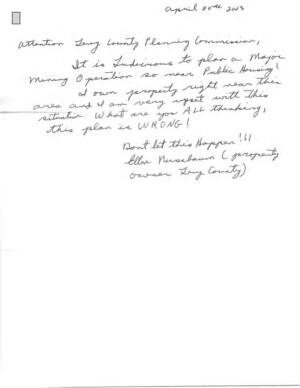 April 20th 2013
Attention Levy County Planning Commission,
It is Ludecrious to plan a Major
Mining Operation so near Public Housing!
I own property right near this
area and I am very upset with this
situation What are you ALL thinking,
this plan is WRONG!
Don't let this Happen!!!
Ellen Nussbaum (property
owner Levy County)